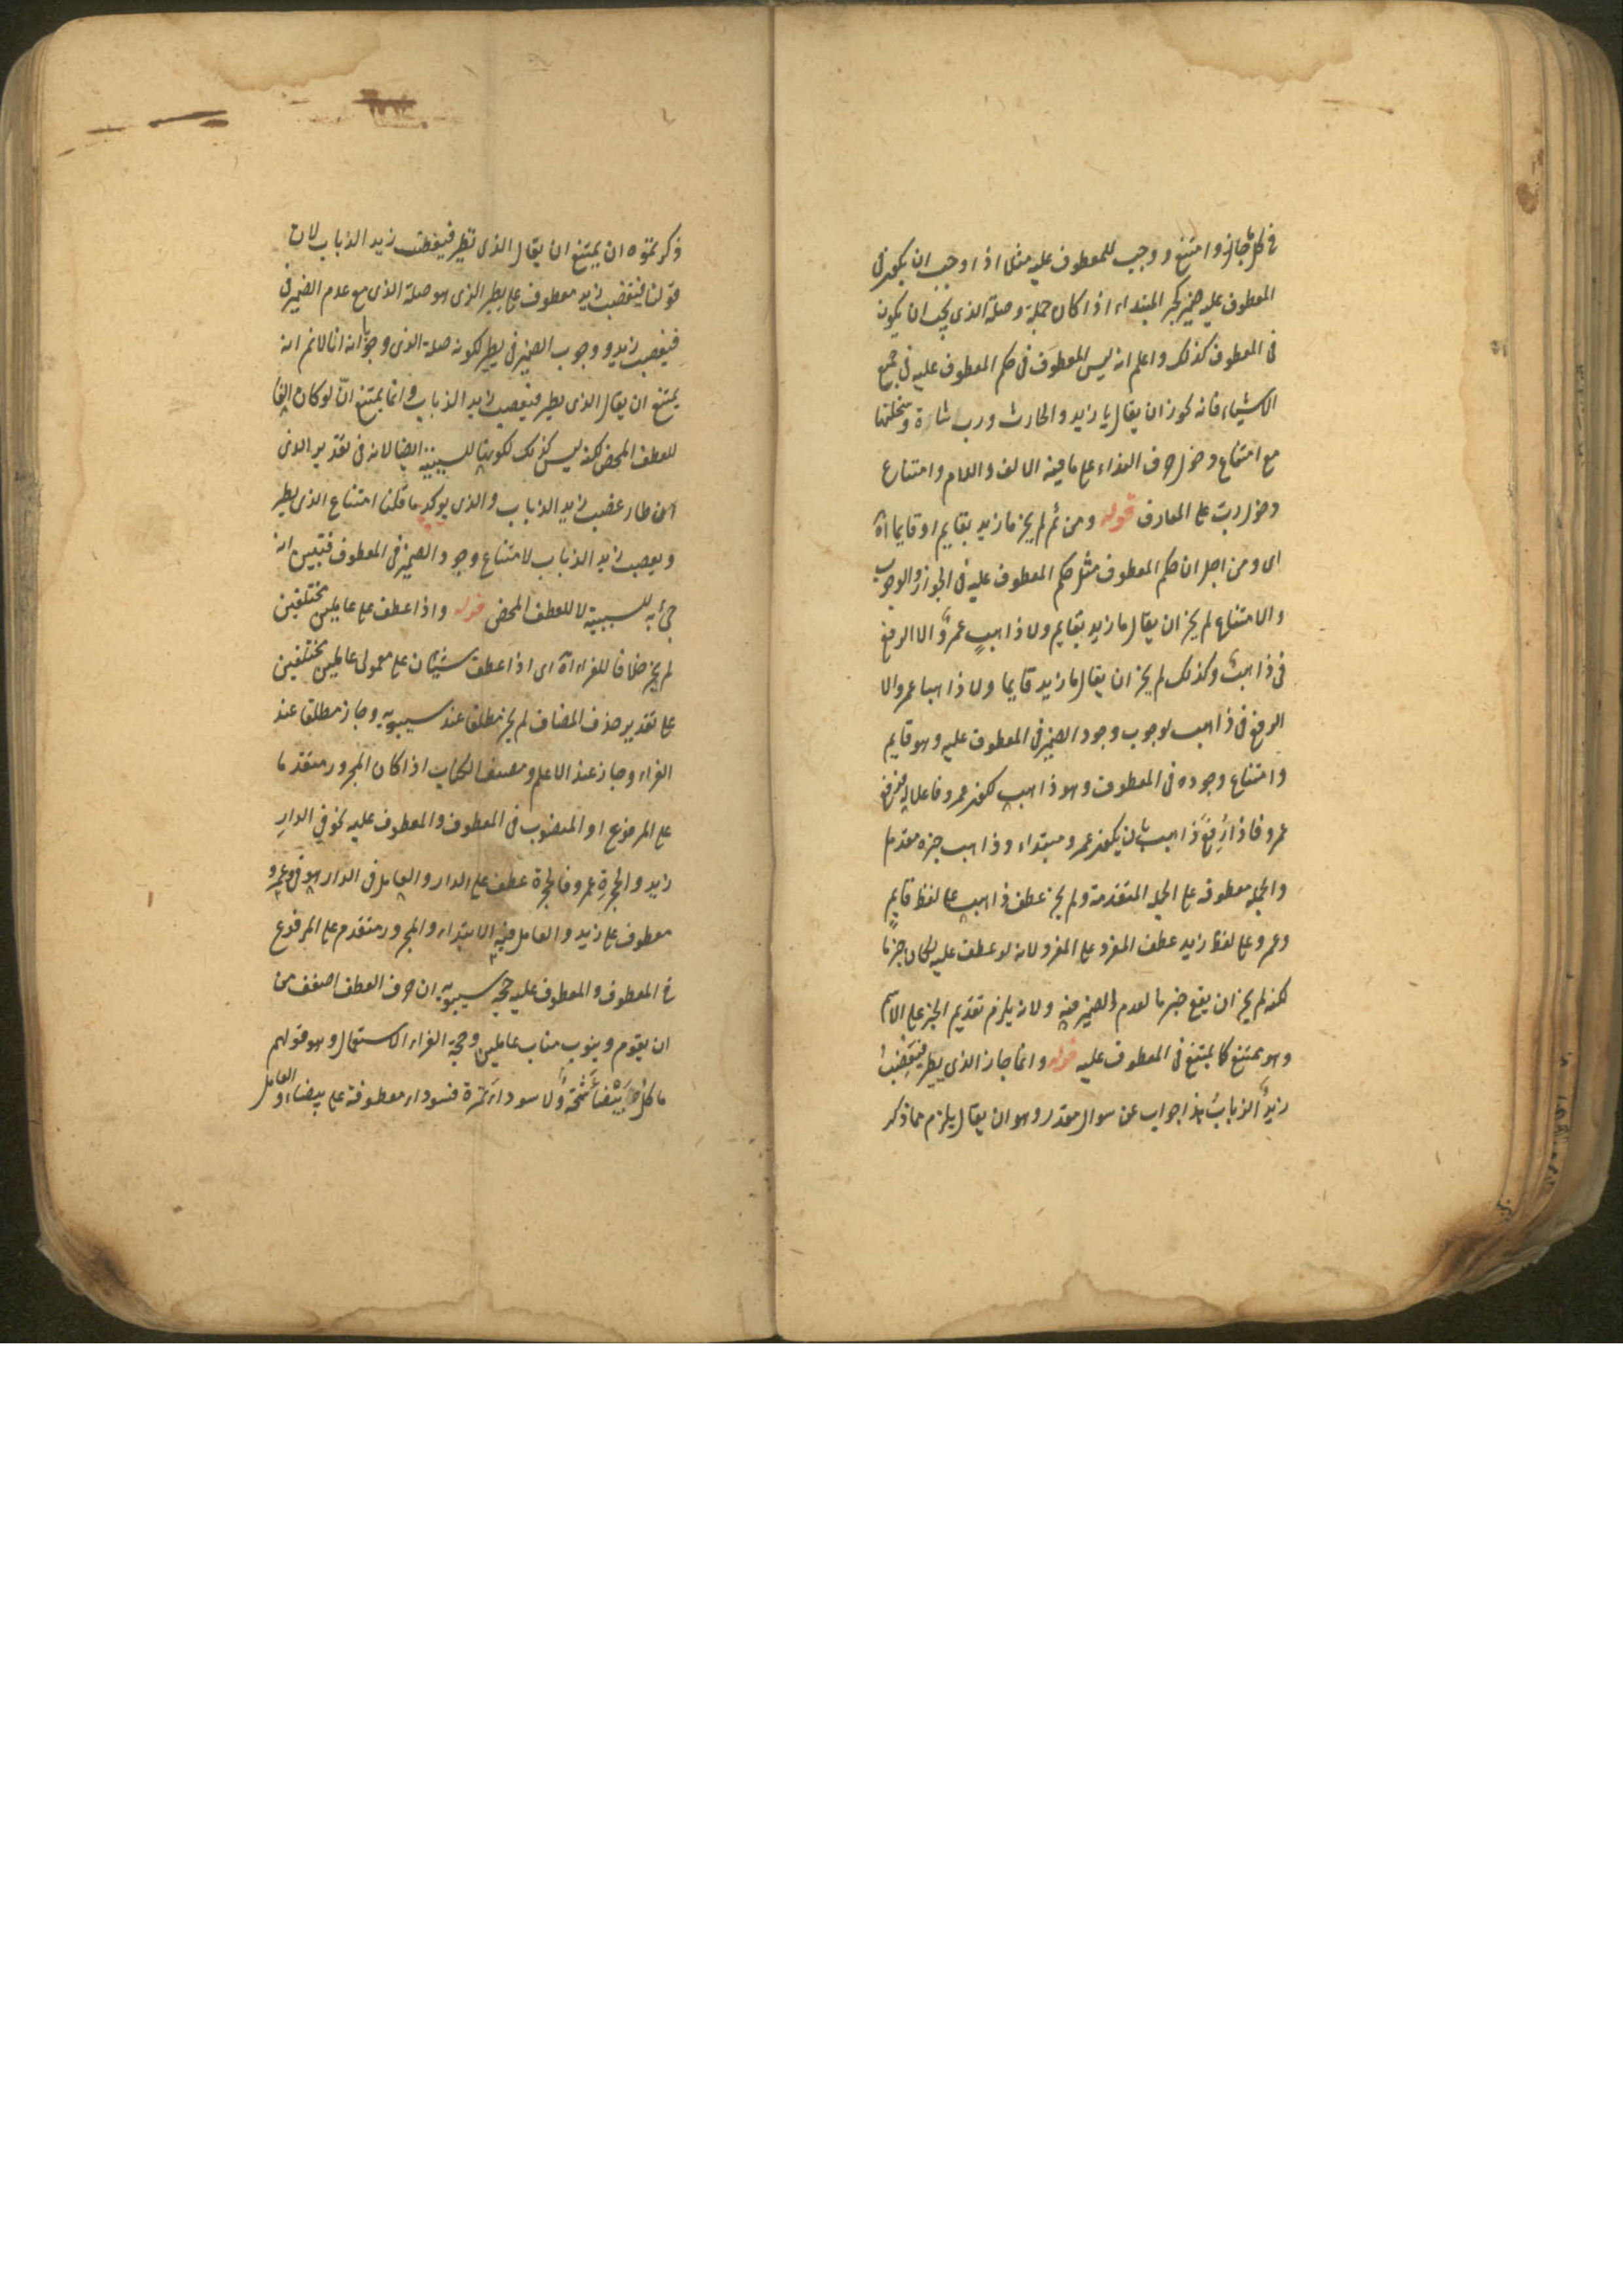 في كل ما جاز وامتنع ووجب للمعطوف عليه مثلا اذا وجب ان يكون في
المعطوف عليه ضمير كخبر المبتداء اذا كان جملة وصلة الذي يجب ان يكون
في المعطوف كذلك واعلم انه ليس المعطوف في حكم المعطوف عليه في جميع
الاشياء فانه يجوز ان يقال يا زيد والحارث ورب شاة وسخلتها
مع امتناع دخول حرف النداء على ما فيه الالف واللام وامتناع
دخول رب على المعارف قوله ومن ثم لم يجز ما زيد بقايم او قايما اه
اى ومن اجل ان حكم المعطوف مثل حكم المعطوف عليه في الجواز والوجوب
والامتناع لم يجز ان يقال ما زيد بقايم ولا ذاهب عمرو الا الرفع
في ذاهب وكذلك لم يجز ان يقال ما زيد قايما ولا ذاهبا عمرو الا
الرفع في ذاهب لوجوب وجود الضمير في المعطوف عليه وهو قايم
وامتناع وجوده في المعطوف وهو ذاهب لكون عمرو فاعلا
عمرو فاذا رفع ذاهب بان يكون عمرو مبتداء وذاهب خبره مقدما
والجملة معطوفة على الجملة المتقدمة ولم يجز عطف ذاهب على لفظ قايم
وعمرو على لفظ زيد عطف المفرد على المفرد لانه لو عطف عليه لكان خبر ما
لكنه لم يجز ان يقع خبر ما لعدم الضمير فيه ولانه يلزم تقديم الخبر على الاسم
وهو ممتنع كما يمتنع في المعطوف عليه قوله وانما جاز الذي يطير فيغضب
زيد الذباب هذا جواب عن سوال مقدر وهو ان يقال يلزم مما ذكر
ذكرتموه ان يمتنع ان يقال الذي يطير فيغضب زيد الذباب لان
قولنا فيغضب زيد معطوف على يطير الذي هو صلة الذي مع عدم الضمير في
فيغضب زيد ووجوب الضمير في يطير لكونه صلة الذي وجوابه انا لا نم انه
يمتنع ان يقال الذي يطير فيغضب زيد الذباب وانما يمتنع ان لو كان الفا
للعطف المحض لكنه ليس كذلك لكونها للسببية ايضا لانه في تقدير الذي
ان طار غضب زيد الذباب والذي يوكد ما قلنا امتناع الذي يطير
ويغضب زيد الذباب لامتناع وجود الضمير في المعطوف فتبين انه
جئ به للسببية لا للعطف المحض قوله واذا عطف على عاملين مختلفين
لم يجز خلافا للفراء اه اى اذا عطف شيئان على معمولى عاملين مختلفين
على تقدير حذف المضاف لم يجز مطلقا عند سيبويه وجاز مطلقا عند
الفراء وجاز عند الاعلم ومصنف الكتاب اذا كان المجرور متقدما
على المرفوع او المنصوب في المعطوف والمعطوف عليه نحو في الدار
زيد والحجرة عمرو فالحجرة عطف على الدار والعامل في الدار هو في وعمرو
معطوف على زيد والعامل فيه الابتداء والمجرور متقدم على المرفوع
في المعطوف والمعطوف عليه حجة سيبويه ان حرف العطف اضعف من
ان يقوم وينوب مناب عاملين وحجة الفراء الاستعمال وهو قولهم
ما كل بيضاء شحمة ولا سوداء تمرة فسوداء معطوفة على بيضاء والعامل